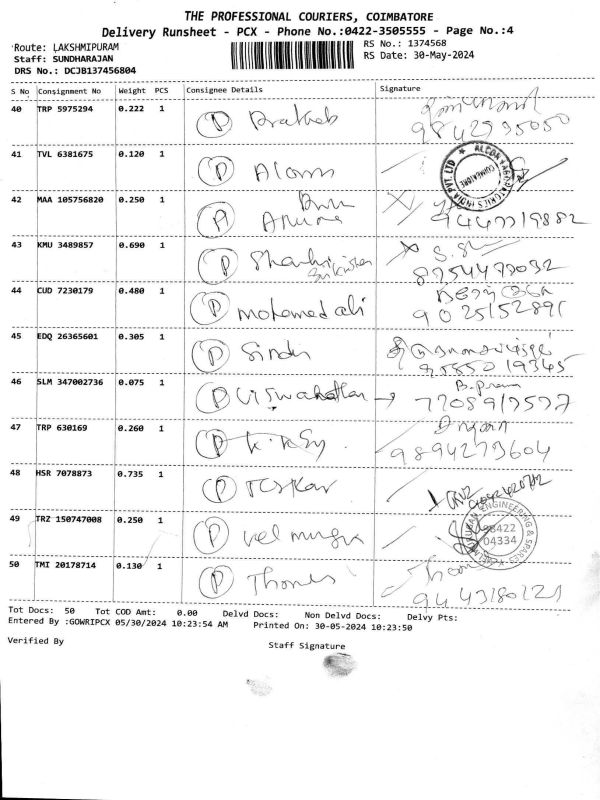 THE PROFESSIONAL COURIERS, COIMBATORE
Delivery Runsheet - PCX - Phone No.:0422-3505555 - Page No.:4
Route: LAKSHMIPURAM
RS No.: 1374568
Staff: SUNDHARAJAN
RS Date: 30-May-2024
DRS No.: DCJB137456804
S No Consignment No Weight PCS Consignee Details Signature
40 TRP 5975294 0.222 1 P Prakash
9842935050
41 TVL 6381675 0.120 1 P
COIMBATORE
42 MAA 105756820 0.250 1 P
9447719882
43 KMU 3489857 0.690 1 P
8754479032
44 CUD 7230179 0.480 1 P Mohamed ali
9025152891
45 EDQ 26365601 0.305 1 P Sindu
46 SLM 347002736 0.075 1 P Viswanathan
7708917577
47 TRP 630169 0.260 1 P
9894273604
48 HSR 7078873 0.735 1 P
49 TRZ 150747008 0.250 1 P vel murugan
ENGINEERING & SPARES
98422
04334
50 TMI 20178714 0.130 1 P Thomas
9443180121
Tot Docs: 50 Tot COD Amt: 0.00 Delvd Docs: Non Delvd Docs: Delvy Pts:
Entered By :GOWRIPCX 05/30/2024 10:23:54 AM Printed On: 30-05-2024 10:23:50
Verified By Staff Signature